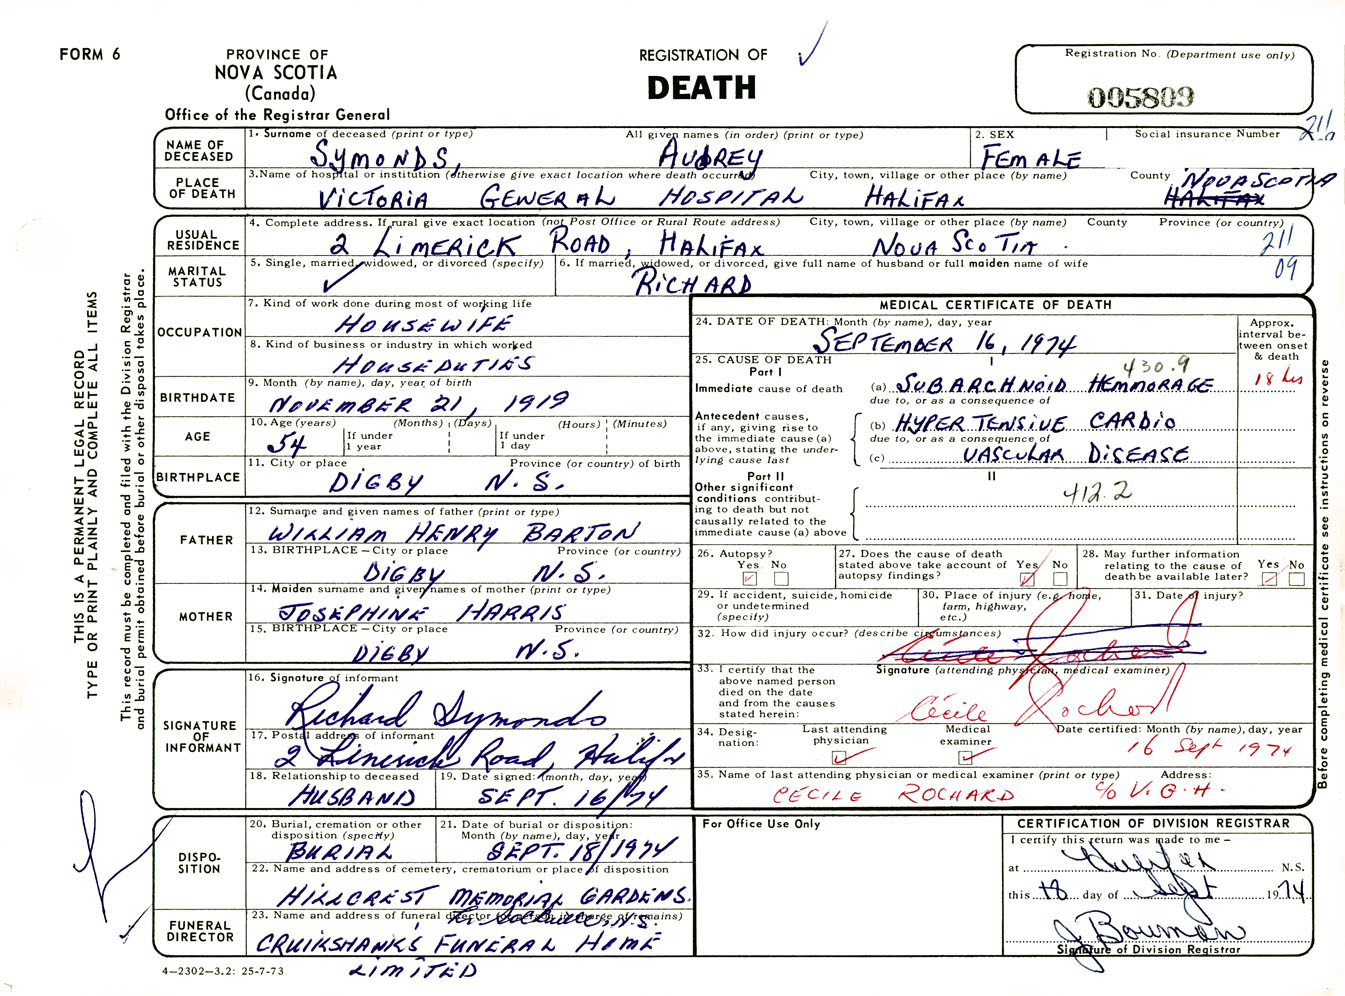 FORM 6
PROVINCE OF
NOVA SCOTIA
(Canada)
Office of the Registrar General
REGISTRATION OF
DEATH
Registration No. (Department use only)
005809
211
NAME OF DECEASED
1. Surname of deceased (print or type) All given names (in order) (print or type) 2. SEX Social insurance Number
SYMONDS, AUDREY FEMALE
PLACE OF DEATH
3. Name of hospital or institution (otherwise give exact location where death occurred) City, town, village or other place (by name) County
NOVA SCOTIA
VICTORIA GENERAL HOSPITAL HALIFAX HALIFAX
USUAL RESIDENCE
4. Complete address. If rural give exact location (not Post Office or Rural Route address) City, town, village or other place (by name) County Province (or country)
2 LIMERICK ROAD, HALIFAX NOVA SCOTIA. 211
09
MARITAL STATUS
5. Single, married, widowed, or divorced (specify) 6. If married, widowed, or divorced, give full name of husband or full maiden name of wife
RICHARD
OCCUPATION
7. Kind of work done during most of working life
HOUSEWIFE
8. Kind of business or industry in which worked
HOUSEDUTIES
BIRTHDATE
9. Month (by name), day, year of birth
NOVEMBER 21, 1919
AGE
10. Age (years) (Months) (Days) (Hours) (Minutes)
54 If under 1 year If under 1 day
BIRTHPLACE
11. City or place Province (or country) of birth
DIGBY N.S.
FATHER
12. Surname and given names of father (print or type)
WILLIAM HENRY BARTON
13. BIRTHPLACE – City or place Province (or country)
DIGBY N.S.
MOTHER
14. Maiden surname and given names of mother (print or type)
JOSEPHINE HARRIS
15. BIRTHPLACE – City or place Province (or country)
DIGBY N.S.
SIGNATURE OF INFORMANT
16. Signature of informant
Richard Symonds
17. Postal address of informant
2 Limerick Road, Halifax
18. Relationship to deceased 19. Date signed: (month, day, year)
HUSBAND SEPT. 16/74
DISPO-SITION
20. Burial, cremation or other disposition (specify) 21. Date of burial or disposition: Month (by name), day, year
BURIAL SEPT. 18/1974
22. Name and address of cemetery, crematorium or place of disposition
HILLCREST MEMORIAL GARDENS.
FUNERAL DIRECTOR
23. Name and address of funeral director (or person in charge of remains)
N.S.
CRUIKSHANKS FUNERAL HOME
LIMITED
4–2302–3.2: 25-7-73
MEDICAL CERTIFICATE OF DEATH
24. DATE OF DEATH: Month (by name), day, year
SEPTEMBER 16, 1974
Approx. interval between onset & death
25. CAUSE OF DEATH
Part I I
430.9
Immediate cause of death (a) SUBARCHNOID HEMMORAGE 18 hrs
due to, or as a consequence of
Antecedent causes, if any, giving rise to the immediate cause (a) above, stating the underlying cause last
(b) HYPERTENSIVE CARDIO
due to, or as a consequence of
(c) VASCULAR DISEASE
Part II II
412.2
Other significant conditions contributing to death but not causally related to the immediate cause (a) above
26. Autopsy? Yes No
27. Does the cause of death stated above take account of autopsy findings? Yes No
28. May further information relating to the cause of death be available later? Yes No
29. If accident, suicide, homicide or undetermined (specify)
30. Place of injury (e.g. home, farm, highway, etc.)
31. Date of injury?
32. How did injury occur? (describe circumstances)
33. I certify that the above named person died on the date and from the causes stated herein:
Signature (attending physician, medical examiner)
Cécile Rochard
34. Designation: Last attending physician Medical examiner Date certified: Month (by name), day, year
16 Sept 1974
35. Name of last attending physician or medical examiner (print or type) Address:
CECILE ROCHARD c/o V.G.H.
For Office Use Only
CERTIFICATION OF DIVISION REGISTRAR
I certify this return was made to me –
at Halifax N.S.
this 18 day of Sept 1974
J Bowman
Signature of Division Registrar
THIS IS A PERMANENT LEGAL RECORD
TYPE OR PRINT PLAINLY AND COMPLETE ALL ITEMS
This record must be completed and filed with the Division Registrar
and burial permit obtained before burial or other disposal takes place.
Before completing medical certificate see instructions on reverse